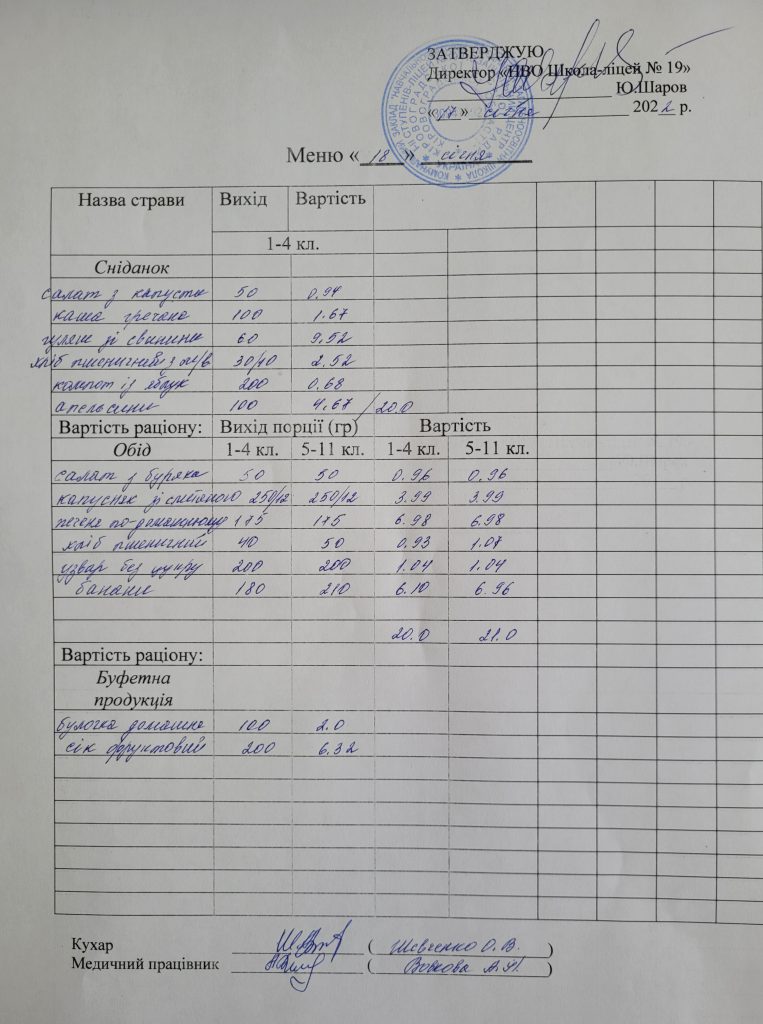 ЗАТВЕРДЖУЮ
Директор «НВО Школа-ліцей № 19»
Ю.Шаров
«17» січня 2022 р.
Меню «18» січня
Назва страви Вихід Вартість
1-4 кл.
Сніданок
салат з капусти 50 0.94
каша гречана 100 1.67
гуляш зі свинини 60 9.52
хліб пшеничний з м/в 30/10 2.52
компот із яблук 200 0.68
апельсини 100 4.67 / 20.0
Вартість раціону: Вихід порції (гр) Вартість
Обід 1-4 кл. 5-11 кл. 1-4 кл. 5-11 кл.
салат з буряка 50 50 0.96 0.96
капусняк зі сметаною 250/12 250/12 3.99 3.99
печеня по-домашньому 175 175 6.98 6.98
хліб пшеничний 40 50 0.93 1.07
узвар без цукру 200 200 1.04 1.04
банани 180 210 6.10 6.96
20.0 21.0
Вартість раціону:
Буфетна
продукція
булочка домашня 100 2.0
сік фруктовий 200 6.32
Кухар ( Шевченко О.В. )
Медичний працівник ( Вовкова )